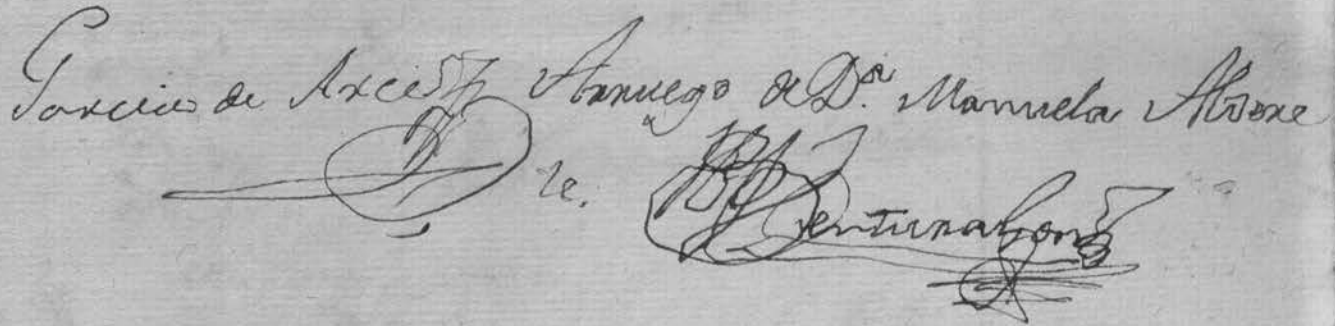 Garcia de Arce Arruego de D.ª Manuela
Bentura Gonz